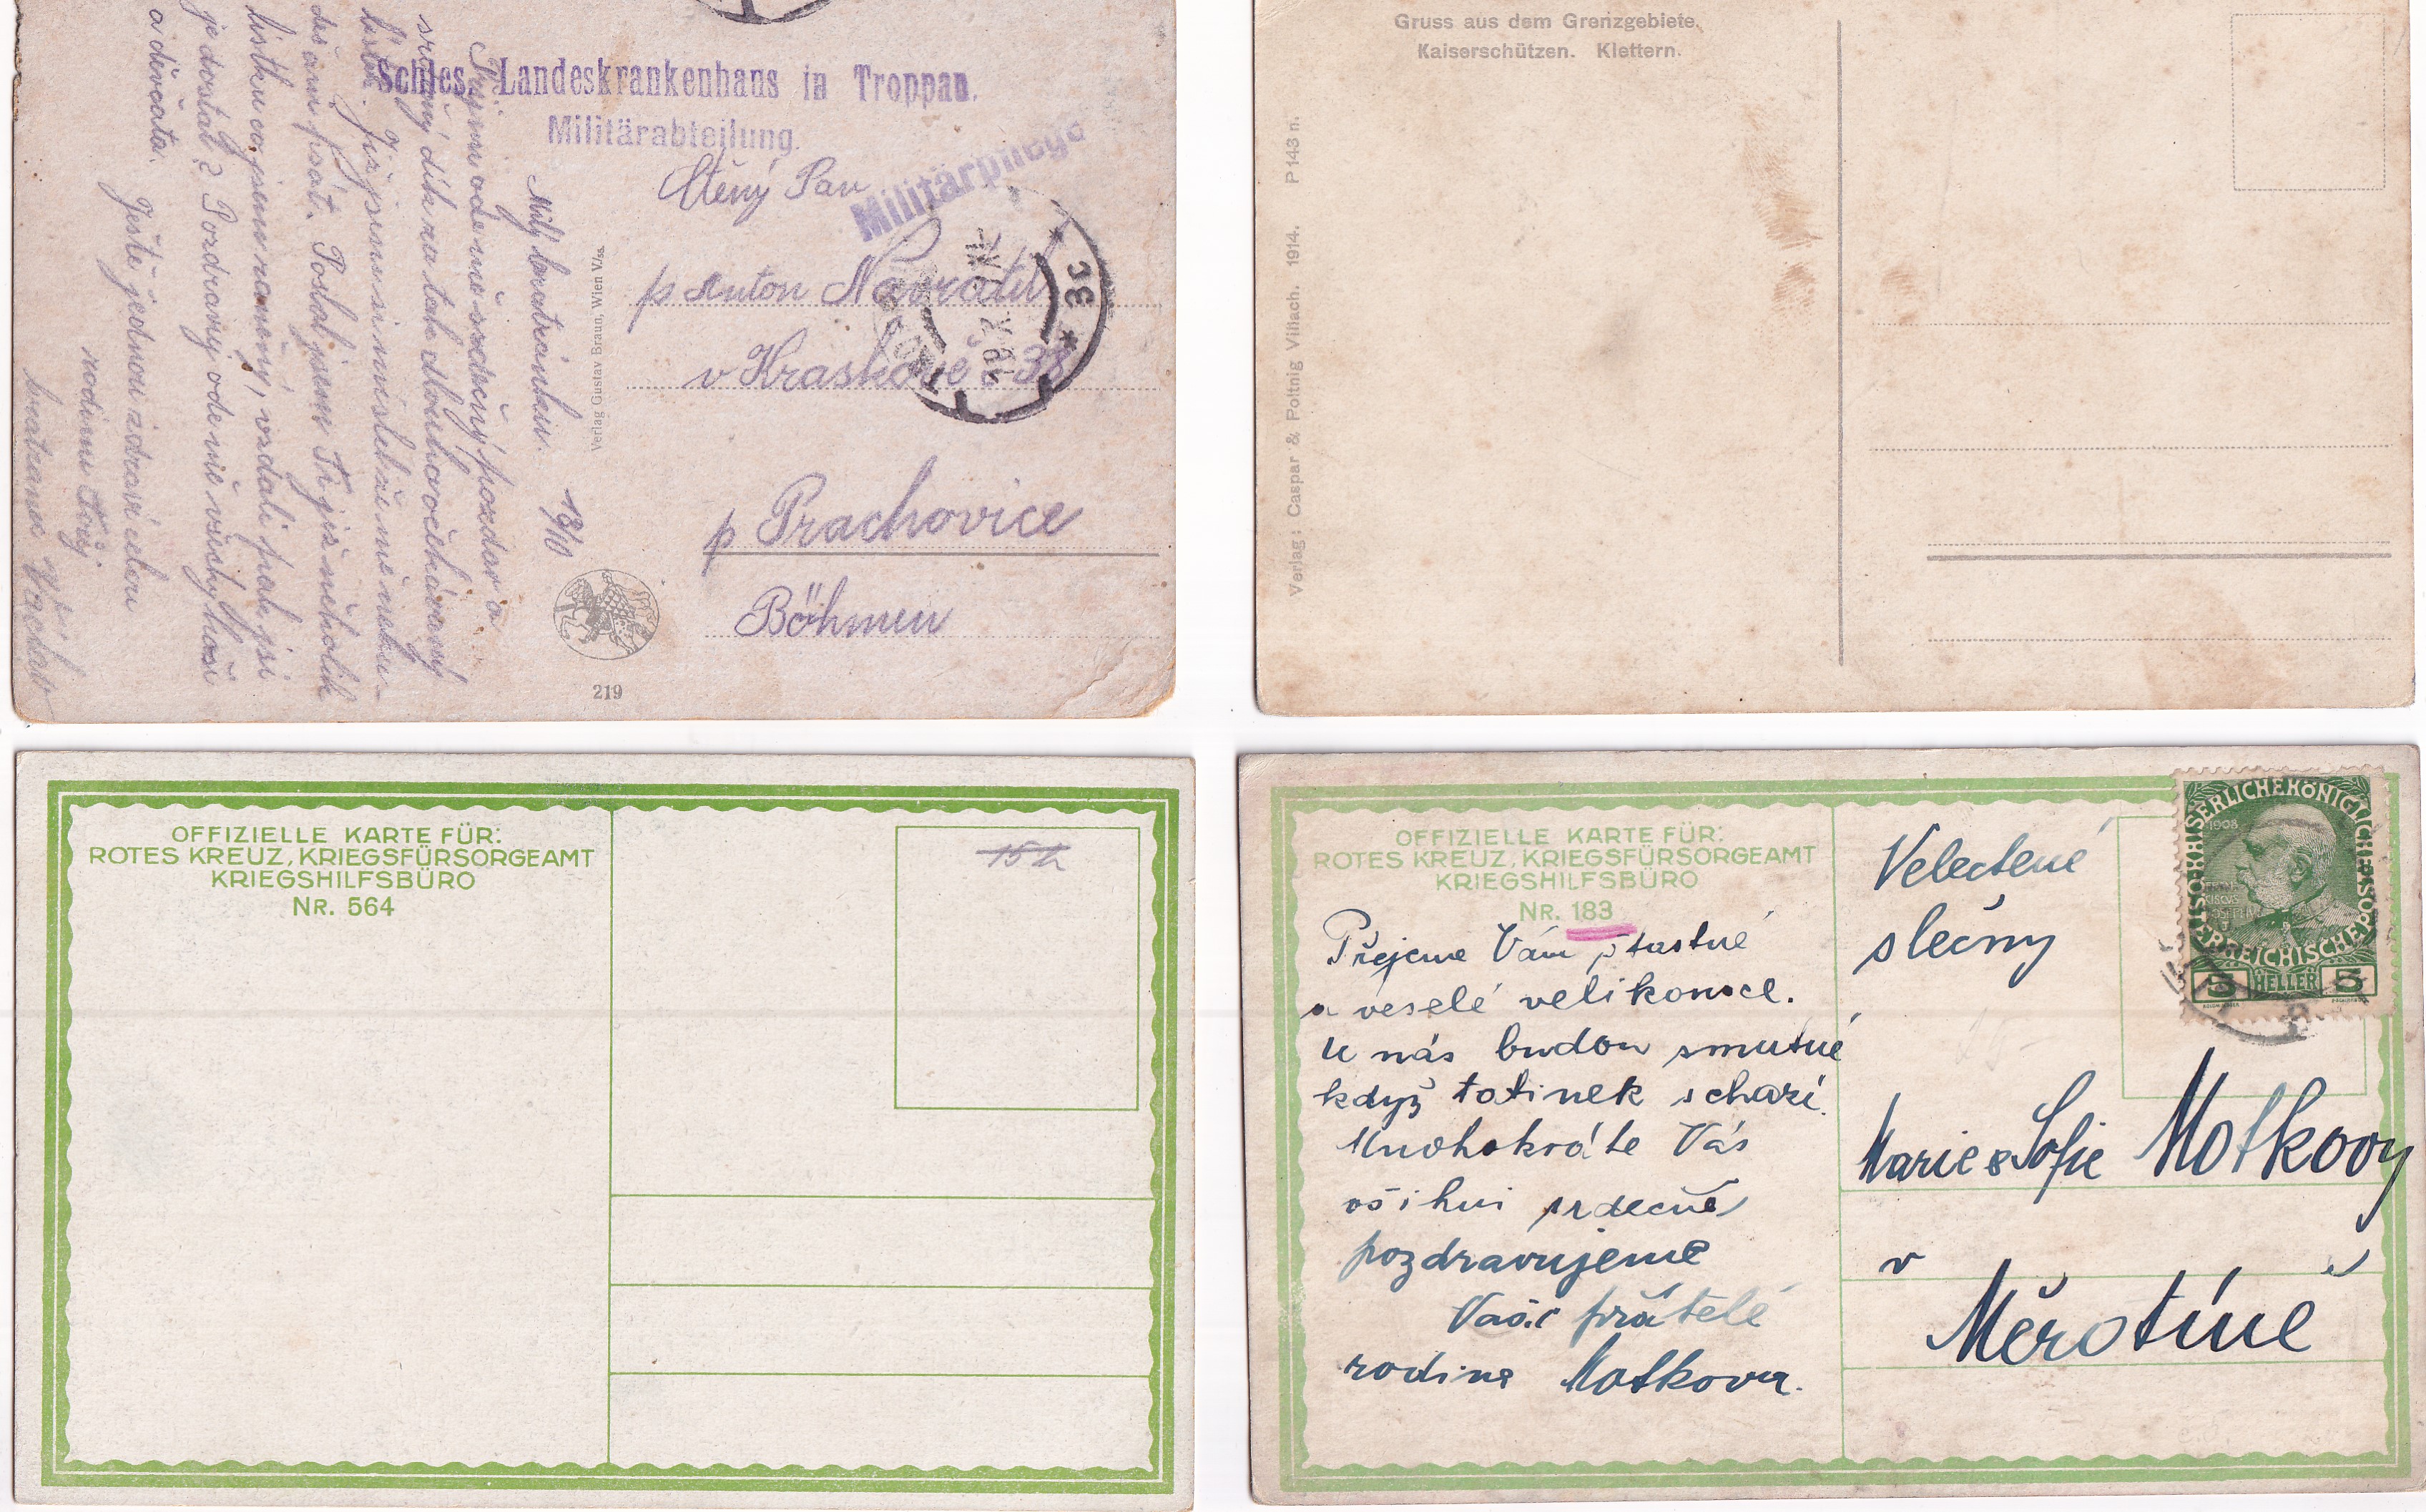 Schles. Landeskrankenhaus in Troppau.
Militärabteilung.
Militärpflege
Ctěný Pan
p Anton Navrátil
v Hraskově č 38
p Prachovice
Böhmen
Verlag Gustav Braun, Wien V/55.
219
Milý bratránku. 18/10
Přijmi ode mě srdečný pozdar a
srdečný dík za tak dlouho očekávaný
lístek. Již jsem si myslel že mě nebu-
deš ani psát. Poslal jsem Ti již několik
lístků co jsem raněný, vzdali pak jsi
je dostal? Pozdravuj ode mě všechy hoši
a děvčata.
Ještě jednou zdraví celou
rodinu Tvůj
bratranec Václav
Gruss aus dem Grenzgebiete.
Kaiserschützen. Klettern.
Verlag: Caspar & Poltnig Villach. 1914. P 143 n.
OFFIZIELLE KARTE FÜR:
ROTES KREUZ, KRIEGSFÜRSORGEAMT
KRIEGSHILFSBÜRO
NR. 564
15 h
OFFIZIELLE KARTE FÜR:
ROTES KREUZ, KRIEGSFÜRSORGEAMT
KRIEGSHILFSBÜRO
NR. 183
Přejeme Vám šťastné
a veselé velikonoce.
U nás budou smutné
když tatínek schází.
Mnohokráte Vás
všihni srdečně
pozdravujeme
Vaši přátelé
rodina Motkova.
Velectené
slečny
Marie & Sofie Motkovy
v
Měrotíně
KAISERLICHE KÖNIGLICHE
ÖSTERREICHISCHE POST
1908
5 HELLER 5